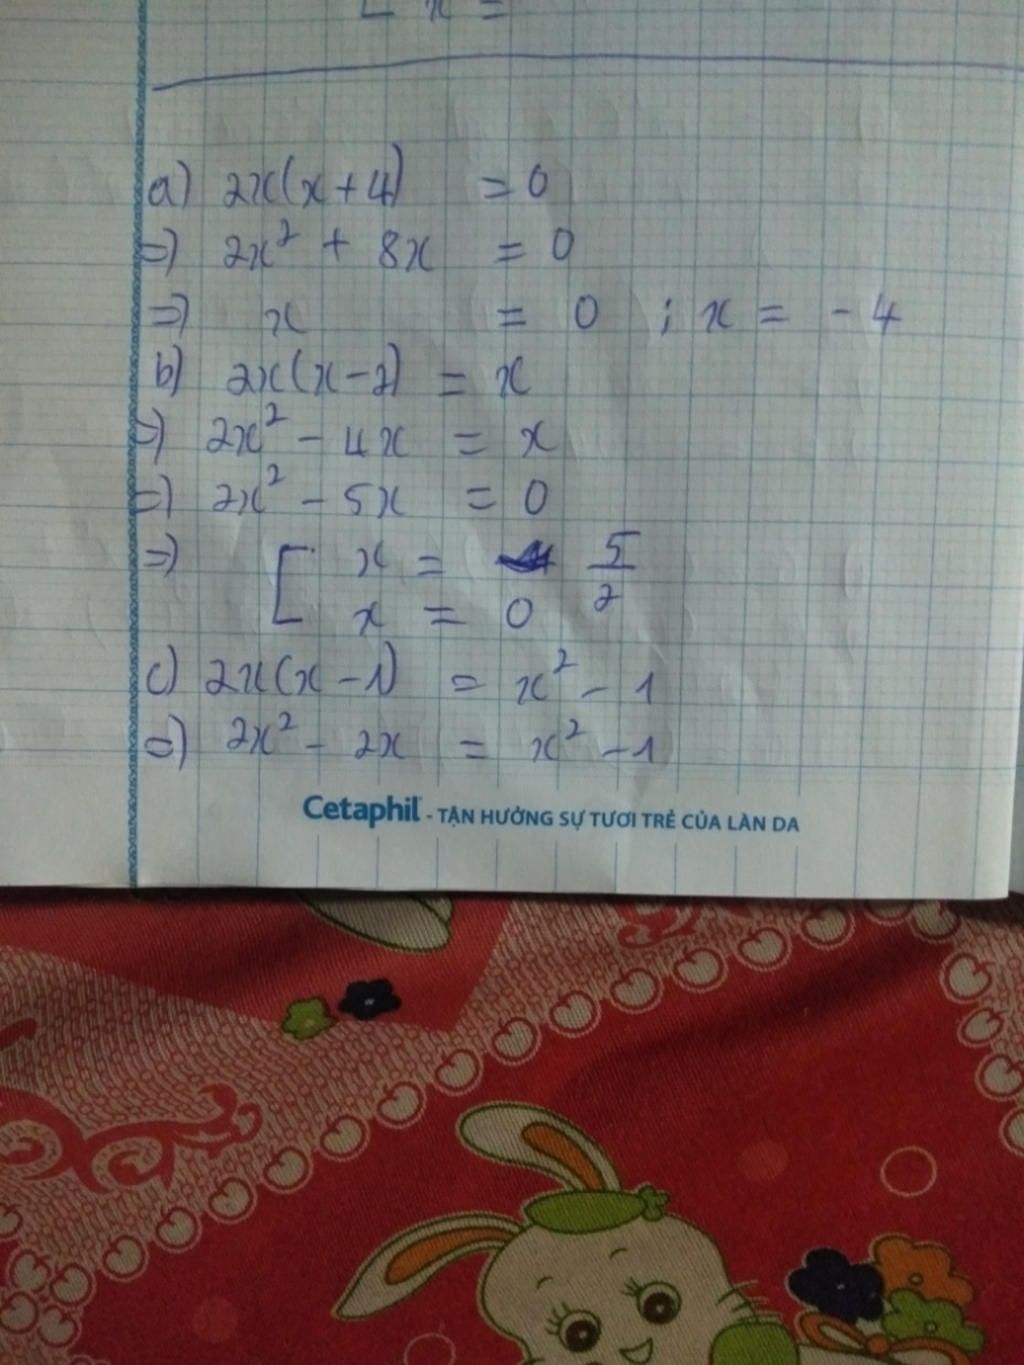 x =
a) 2x(x+4) = 0
=> 2x² + 8x = 0
=> x = 0 ; x = -4
b) 2x(x-2) = x
=> 2x² - 4x = x
=> 2x² - 5x = 0
=> [ x = 5/2
x = 0
c) 2x(x-1) = x² - 1
=> 2x² - 2x = x² - 1
Cetaphil - TẬN HƯỞNG SỰ TƯƠI TRẺ CỦA LÀN DA